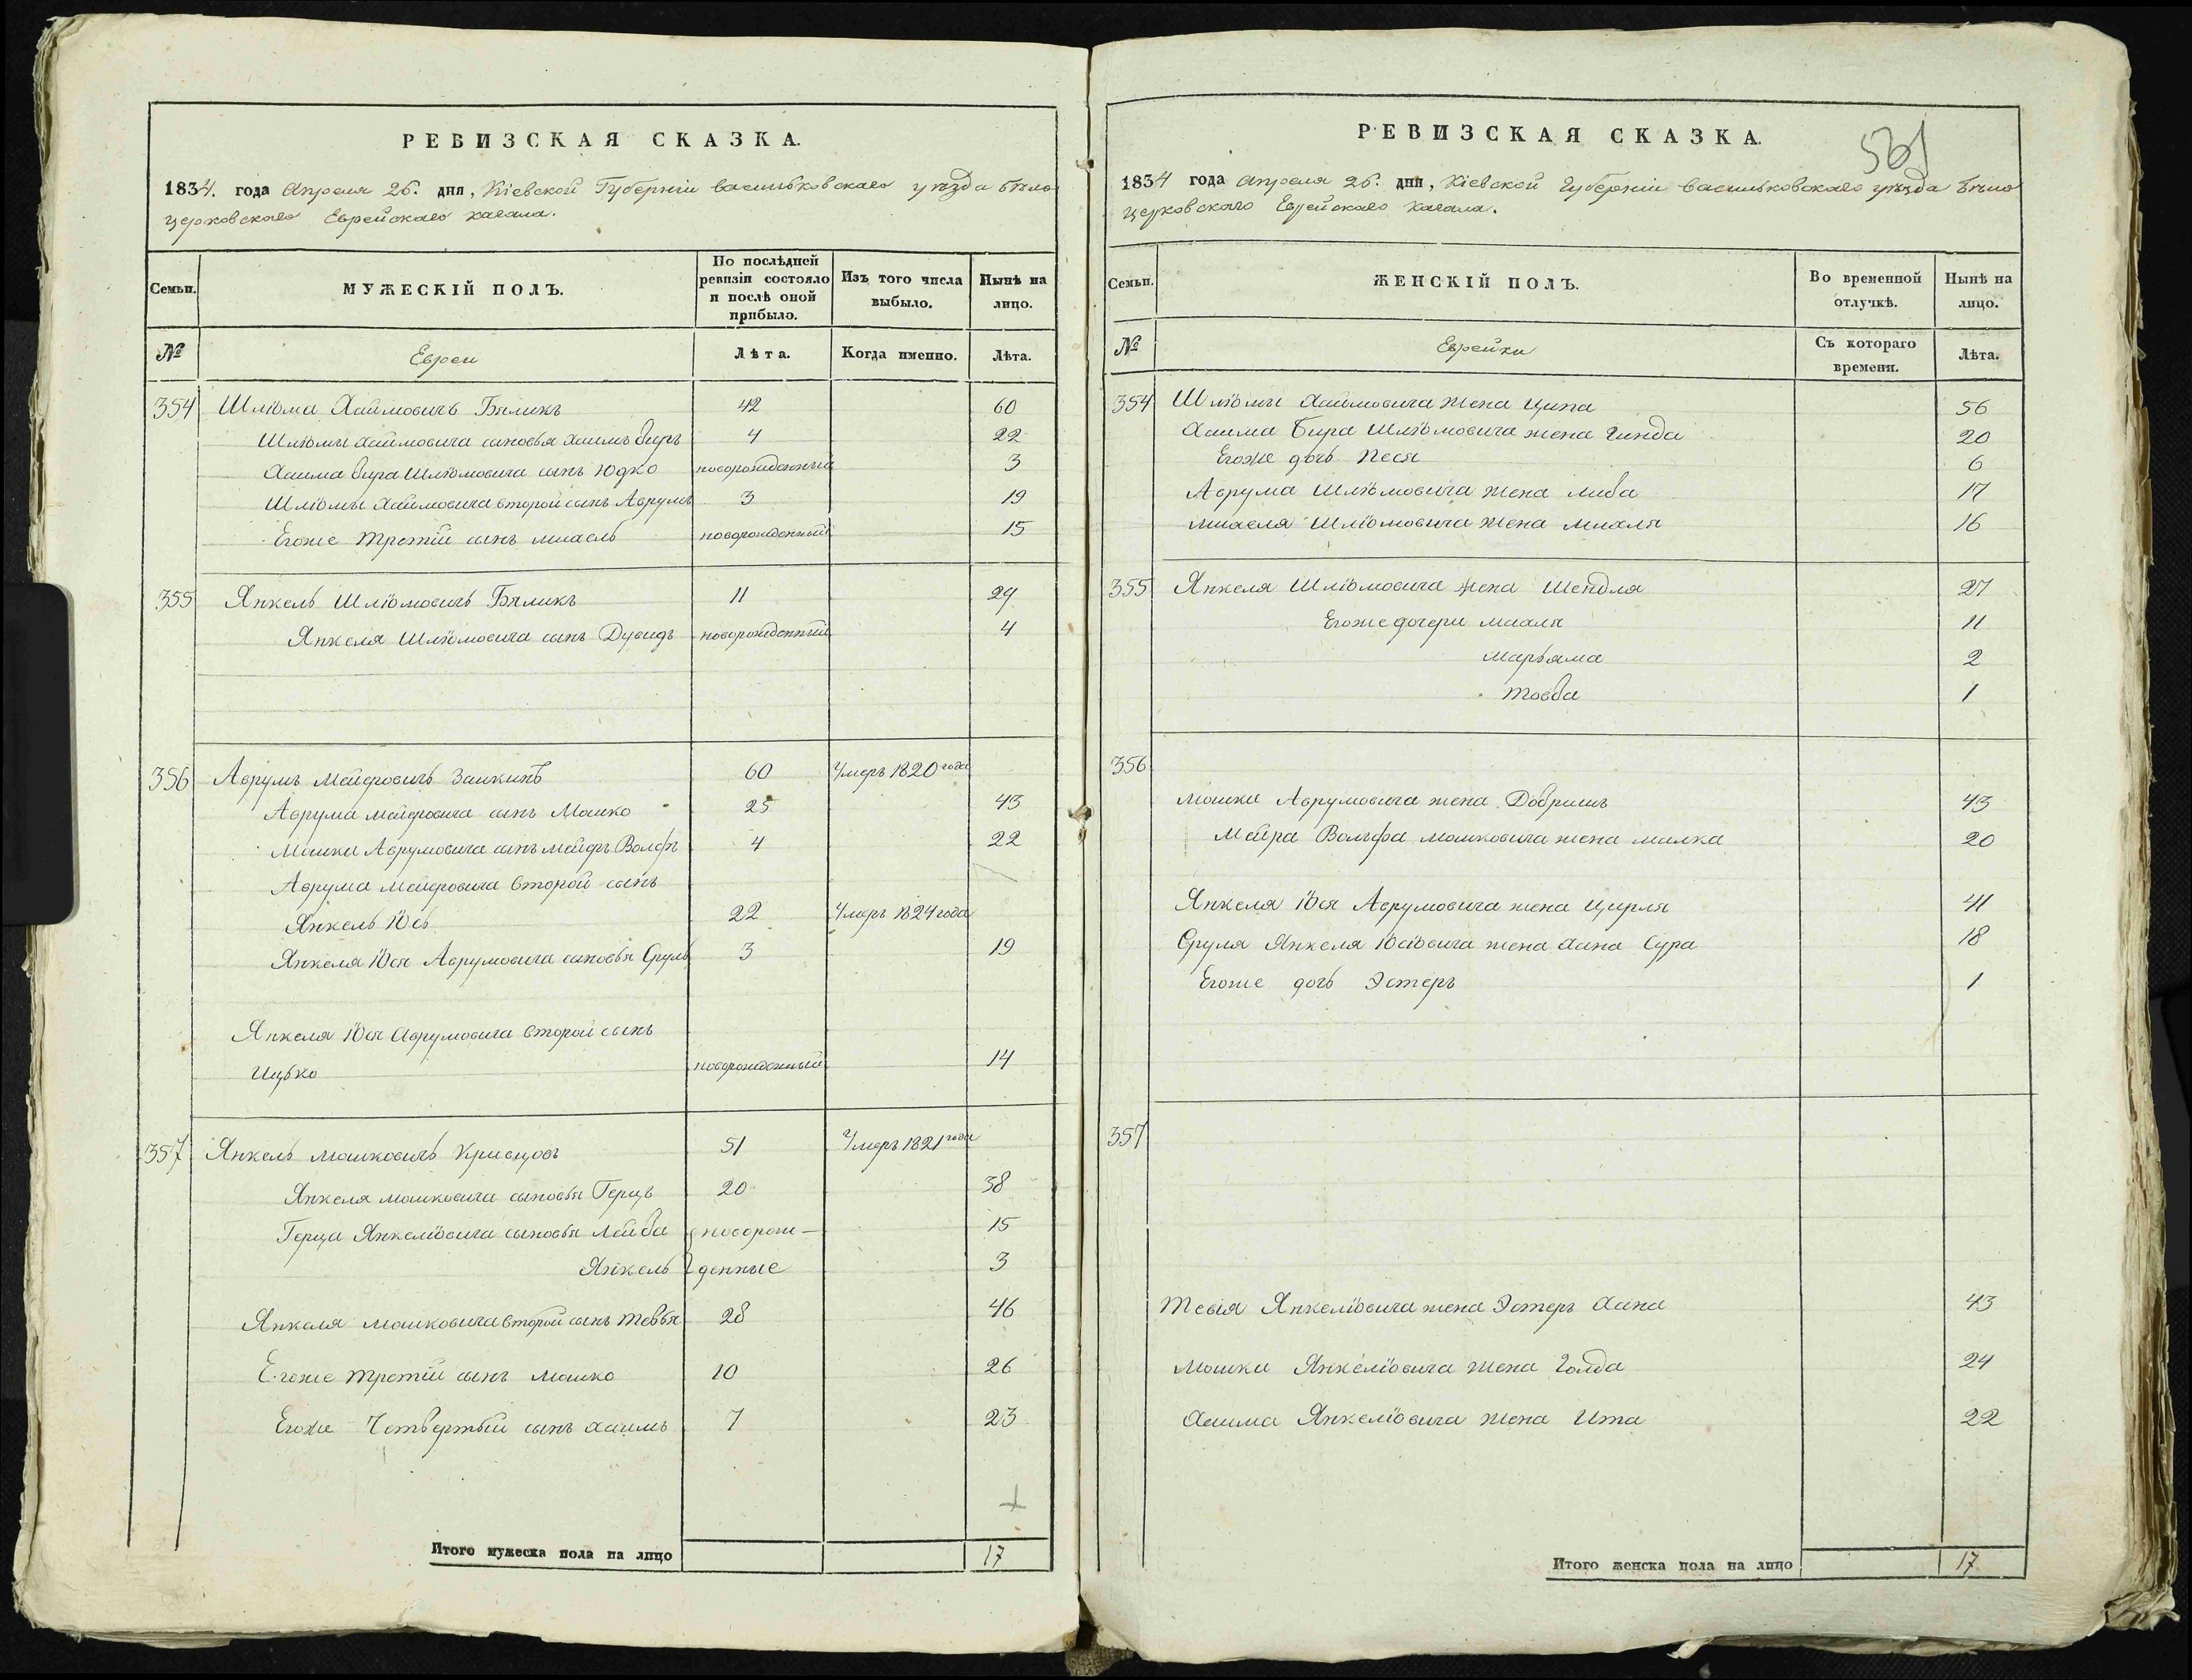 РЕВИЗСКАЯ СКАЗКА.
1834. года Апреля 26. дня, Кіевской Губерніи васильковскаго уѣзда бѣло
церковскаго Еврейскаго кагала.
Семьи.
МУЖЕСКІЙ ПОЛЪ.
По послѣдней ревизіи состояло и послѣ оной прибыло.
Изъ того числа выбыло.
Нынѣ на лицо.
№
Евреи
Лѣта.
Когда именно.
Лѣта.
354 Шліома Хаимовичъ Бѣликъ 42 60
Шліомы Хаимовича сыновья Хаимъ Биръ 4 22
Хаима Бира Шліомовича сынъ Юдко новорожденный 3
Шліомы Хаимовича второй сынъ Аврумъ 3 19
Егоже третій сынъ михель новорожденный 15
355 Янкель Шліомовичъ Бѣликъ 11 29
Янкеля Шліомовича сынъ Дувидъ новорожденный 4
356 Аврумъ Мейеровичъ Заикинъ 60 Умеръ 1820 года
Аврума мейеровича сынъ Мошко 25 43
Мошки Аврумовича сынъ мейеръ Волфъ 4 22
Аврума мейеровича второй сынъ
Янкель Юсь 22 Умеръ 1824 года
Янкеля Юся Аврумовича сыновья Сруль 3 19
Янкеля Юся Аврумовича второй сынъ
Ицько новорожденный 14
357 Янкель мошковичъ Кривцовъ 51 Умеръ 1821 года
Янкеля мошковича сыновья Герцъ 20 38
Герца Янкеліовича сыновья Лейба новорож- 15
Янкель денные 3
Янкеля мошковича второй сынъ тевья 28 46
Егоже третій сынъ мошко 10 26
Егоже Четвертый сынъ хаимъ 7 23
Итого мужеска пола на лицо 17
РЕВИЗСКАЯ СКАЗКА.
1834 года Апреля 26. дня, Кіевской Губерніи васильковскаго уѣзда бѣло
церковскаго Еврейскаго кагала.
Семьи.
ЖЕНСКІЙ ПОЛЪ.
Во временной отлучкѣ.
Нынѣ на лицо.
№
Еврейки
Съ котораго времени.
Лѣта.
354 Шліомы Хаимовича жена Ципа 56
Хаима Бира Шліомовича жена Гинда 20
Егоже дочь Песя 6
Аврума Шліомовича жена либа 17
михеля Шліомовича жена михля 16
355 Янкеля Шліомовича жена Шендля 27
Егоже дочери михля 11
Марьяма 2
товба 1
356
мошки Аврумовича жена Добришъ 43
Мейра Вольфа мошковича жена малка 20
Янкеля Юся Аврумовича жена Цирля 41
Сруля Янкеля Юсіовича жена хана Сура 18
Егоже дочь Эстеръ 1
357
тевія Янкеліовича жена Эстеръ хана 43
мошки Янкеліовича жена Голда 24
Хаима Янкеліовича жена Ита 22
Итого женска пола на лицо 17